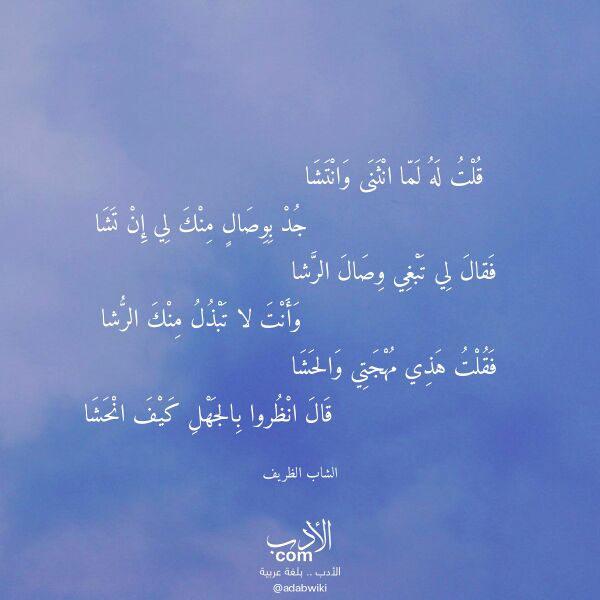 قُلْتُ لَهُ لَمّا انْثَنَى وَانْتَشَا
جُدْ بِوِصَالٍ مِنْكَ لِي إِنْ تَشَا
فَقالَ لِي تَبْغِي وِصَالَ الرَّشا
وَأَنْتَ لا تَبْذُلُ مِنْكَ الرُّشا
فَقُلْتُ هَذِي مُهْجَتِي وَالحَشَا
قَالَ انْظُروا بِالجَهْلِ كَيْفَ انْحَشَا
الشاب الظريف
الأدب
com
الأدب .. بلغة عربية
@adabwiki